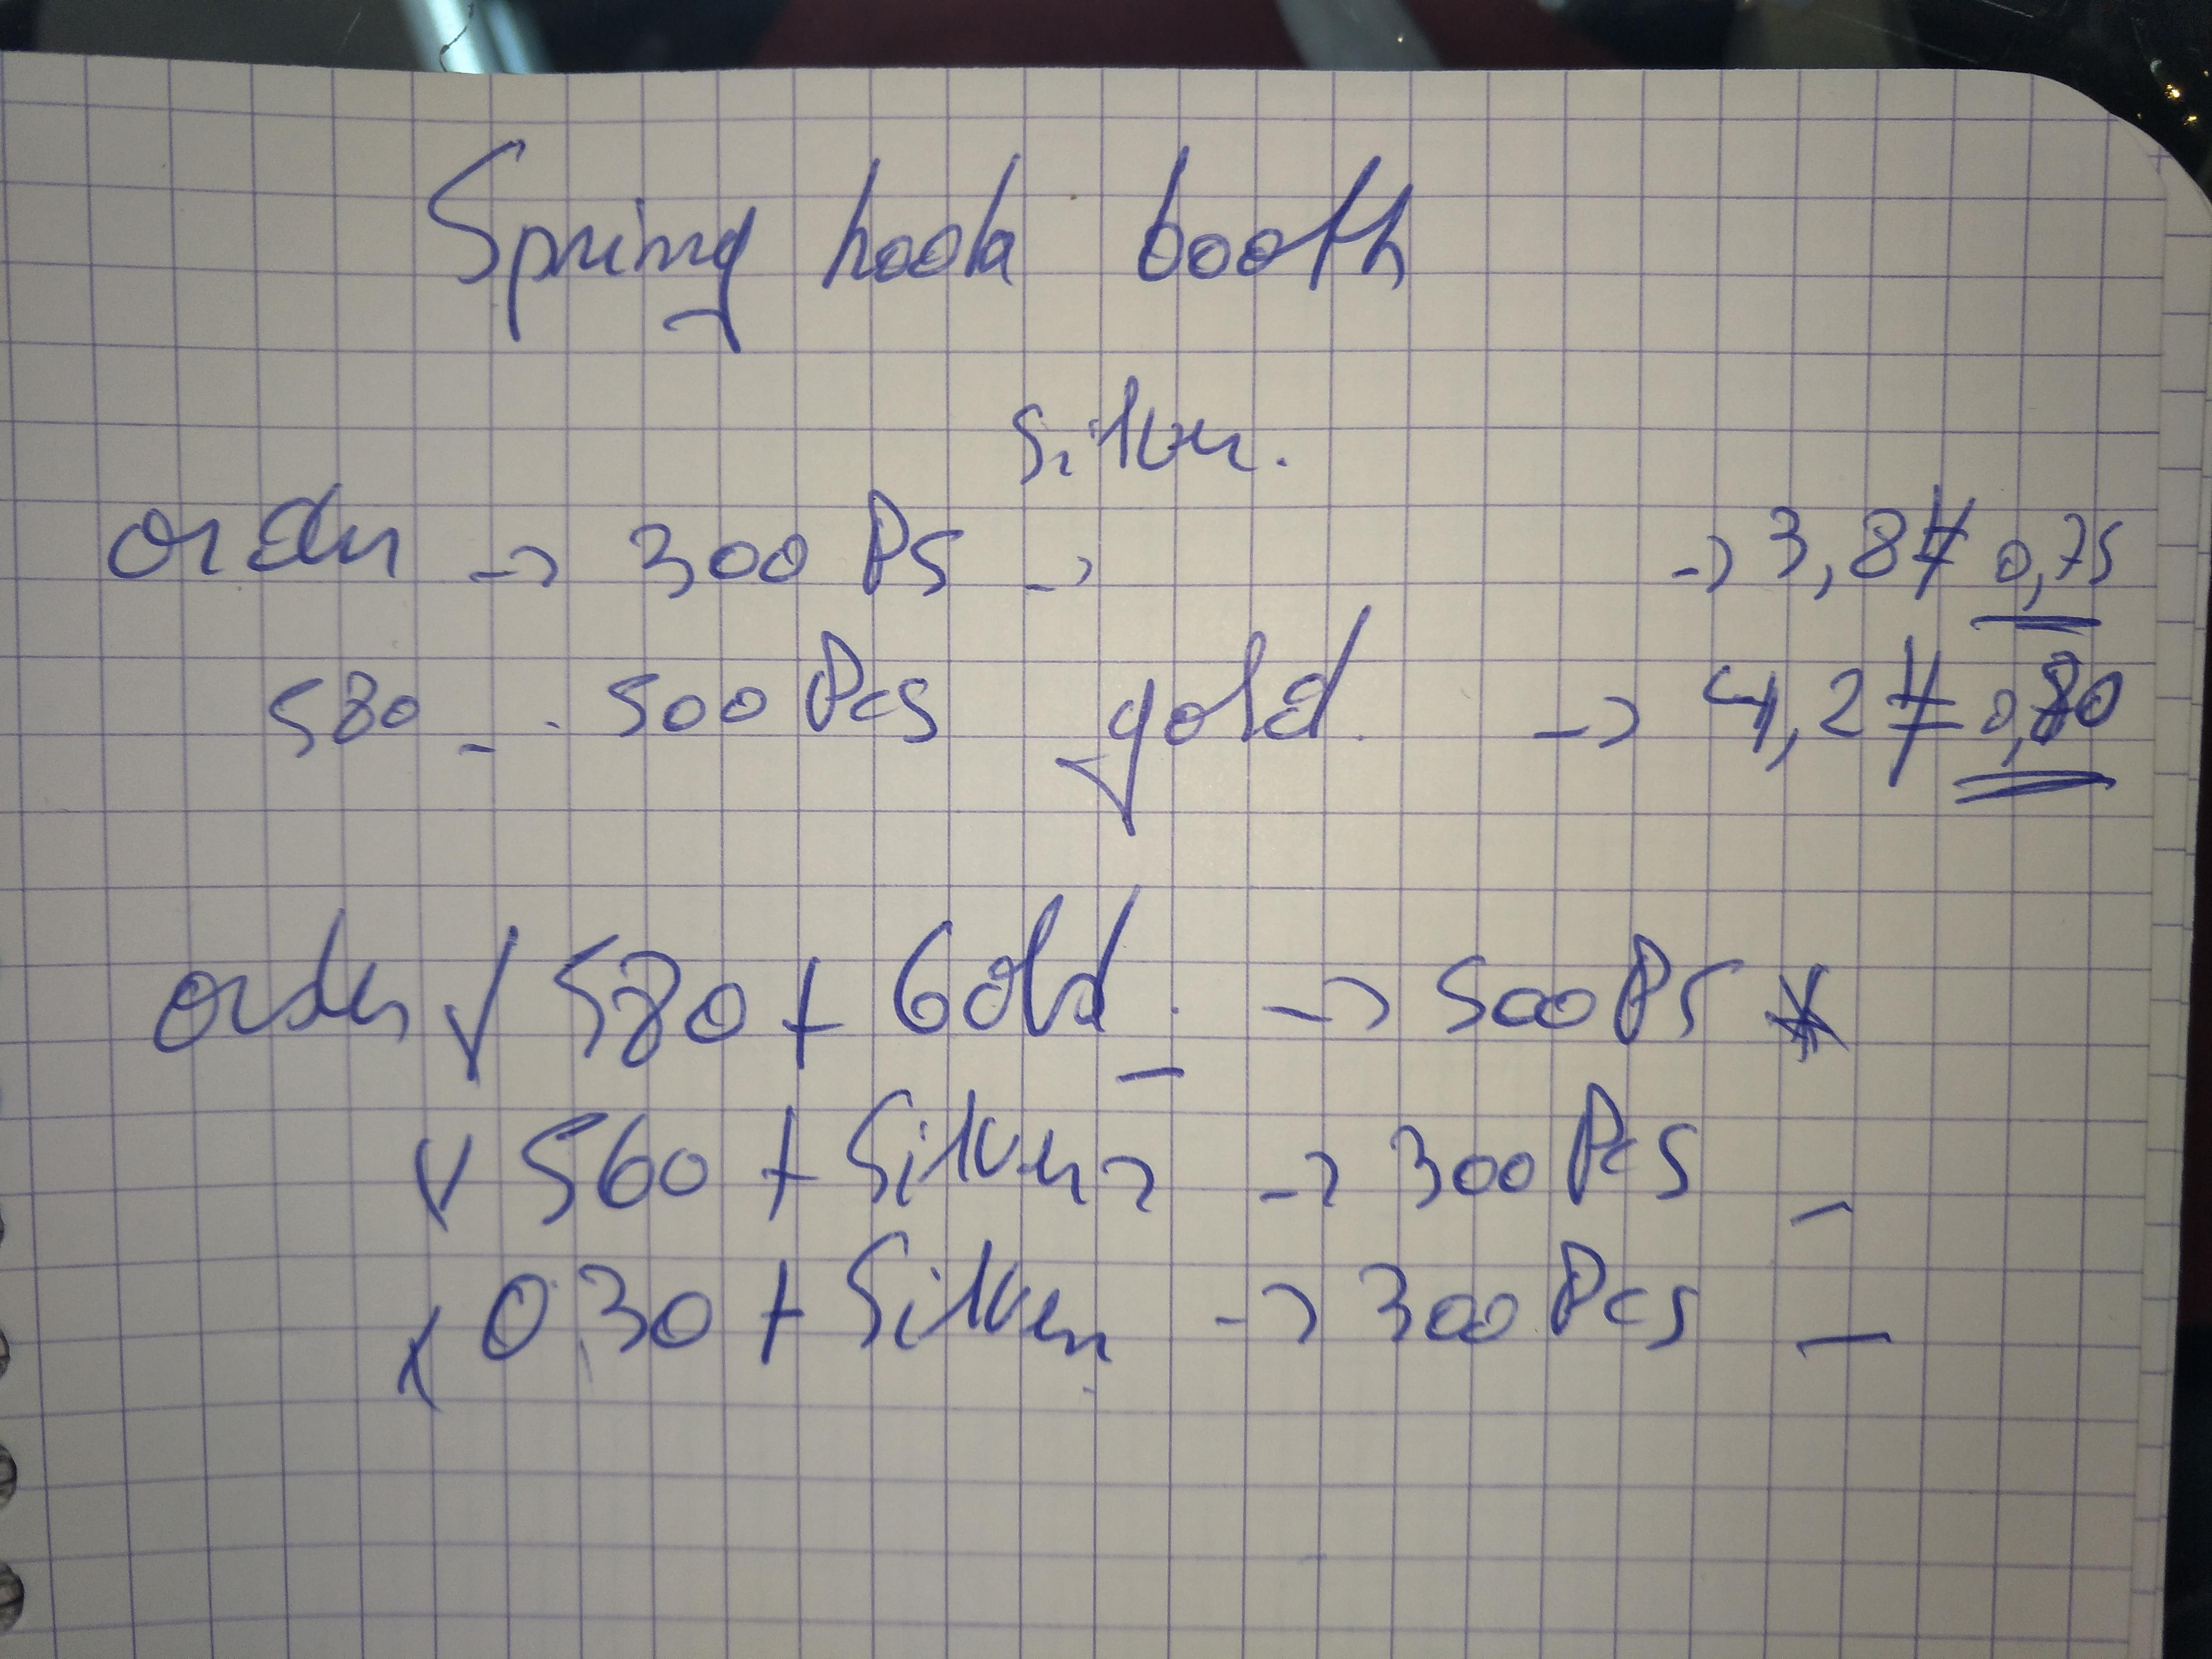 Spring hook booth
Silver.
order -> 300 Ps -> -> 3,8 # 0,75
580 - . 500 Pcs gold. -> 4,2 # 0,80
order √ 580 + Gold. -> 500 Ps *
v 560 + Silver -> 300 Pcs -
x 030 + Silver -> 300 Pcs -